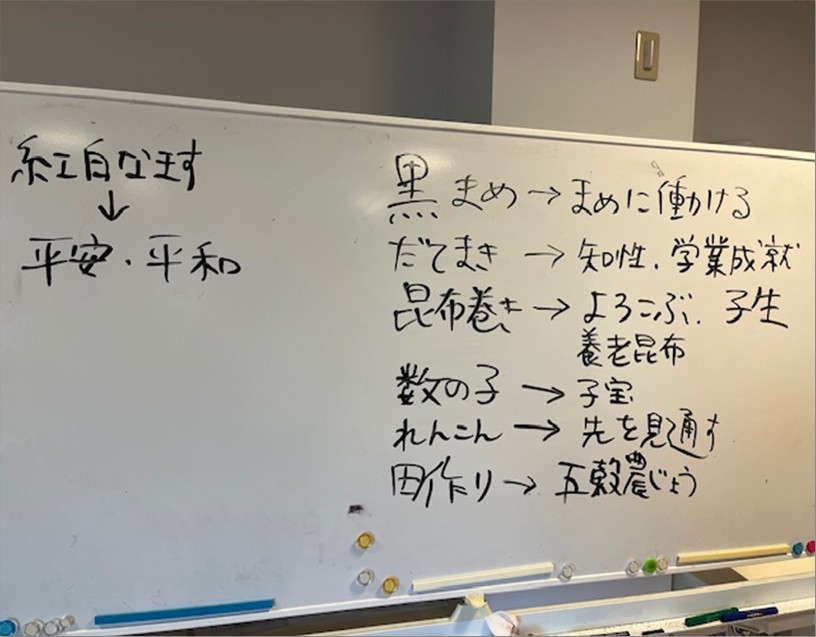 紅白なます
↓
平安・平和
黒まめ→まめに働ける
だてまき→知性、学業成就
昆布巻き→よろこぶ、子生
養老昆布
数の子→子宝
れんこん→先を見通す
田作り→五穀農じょう